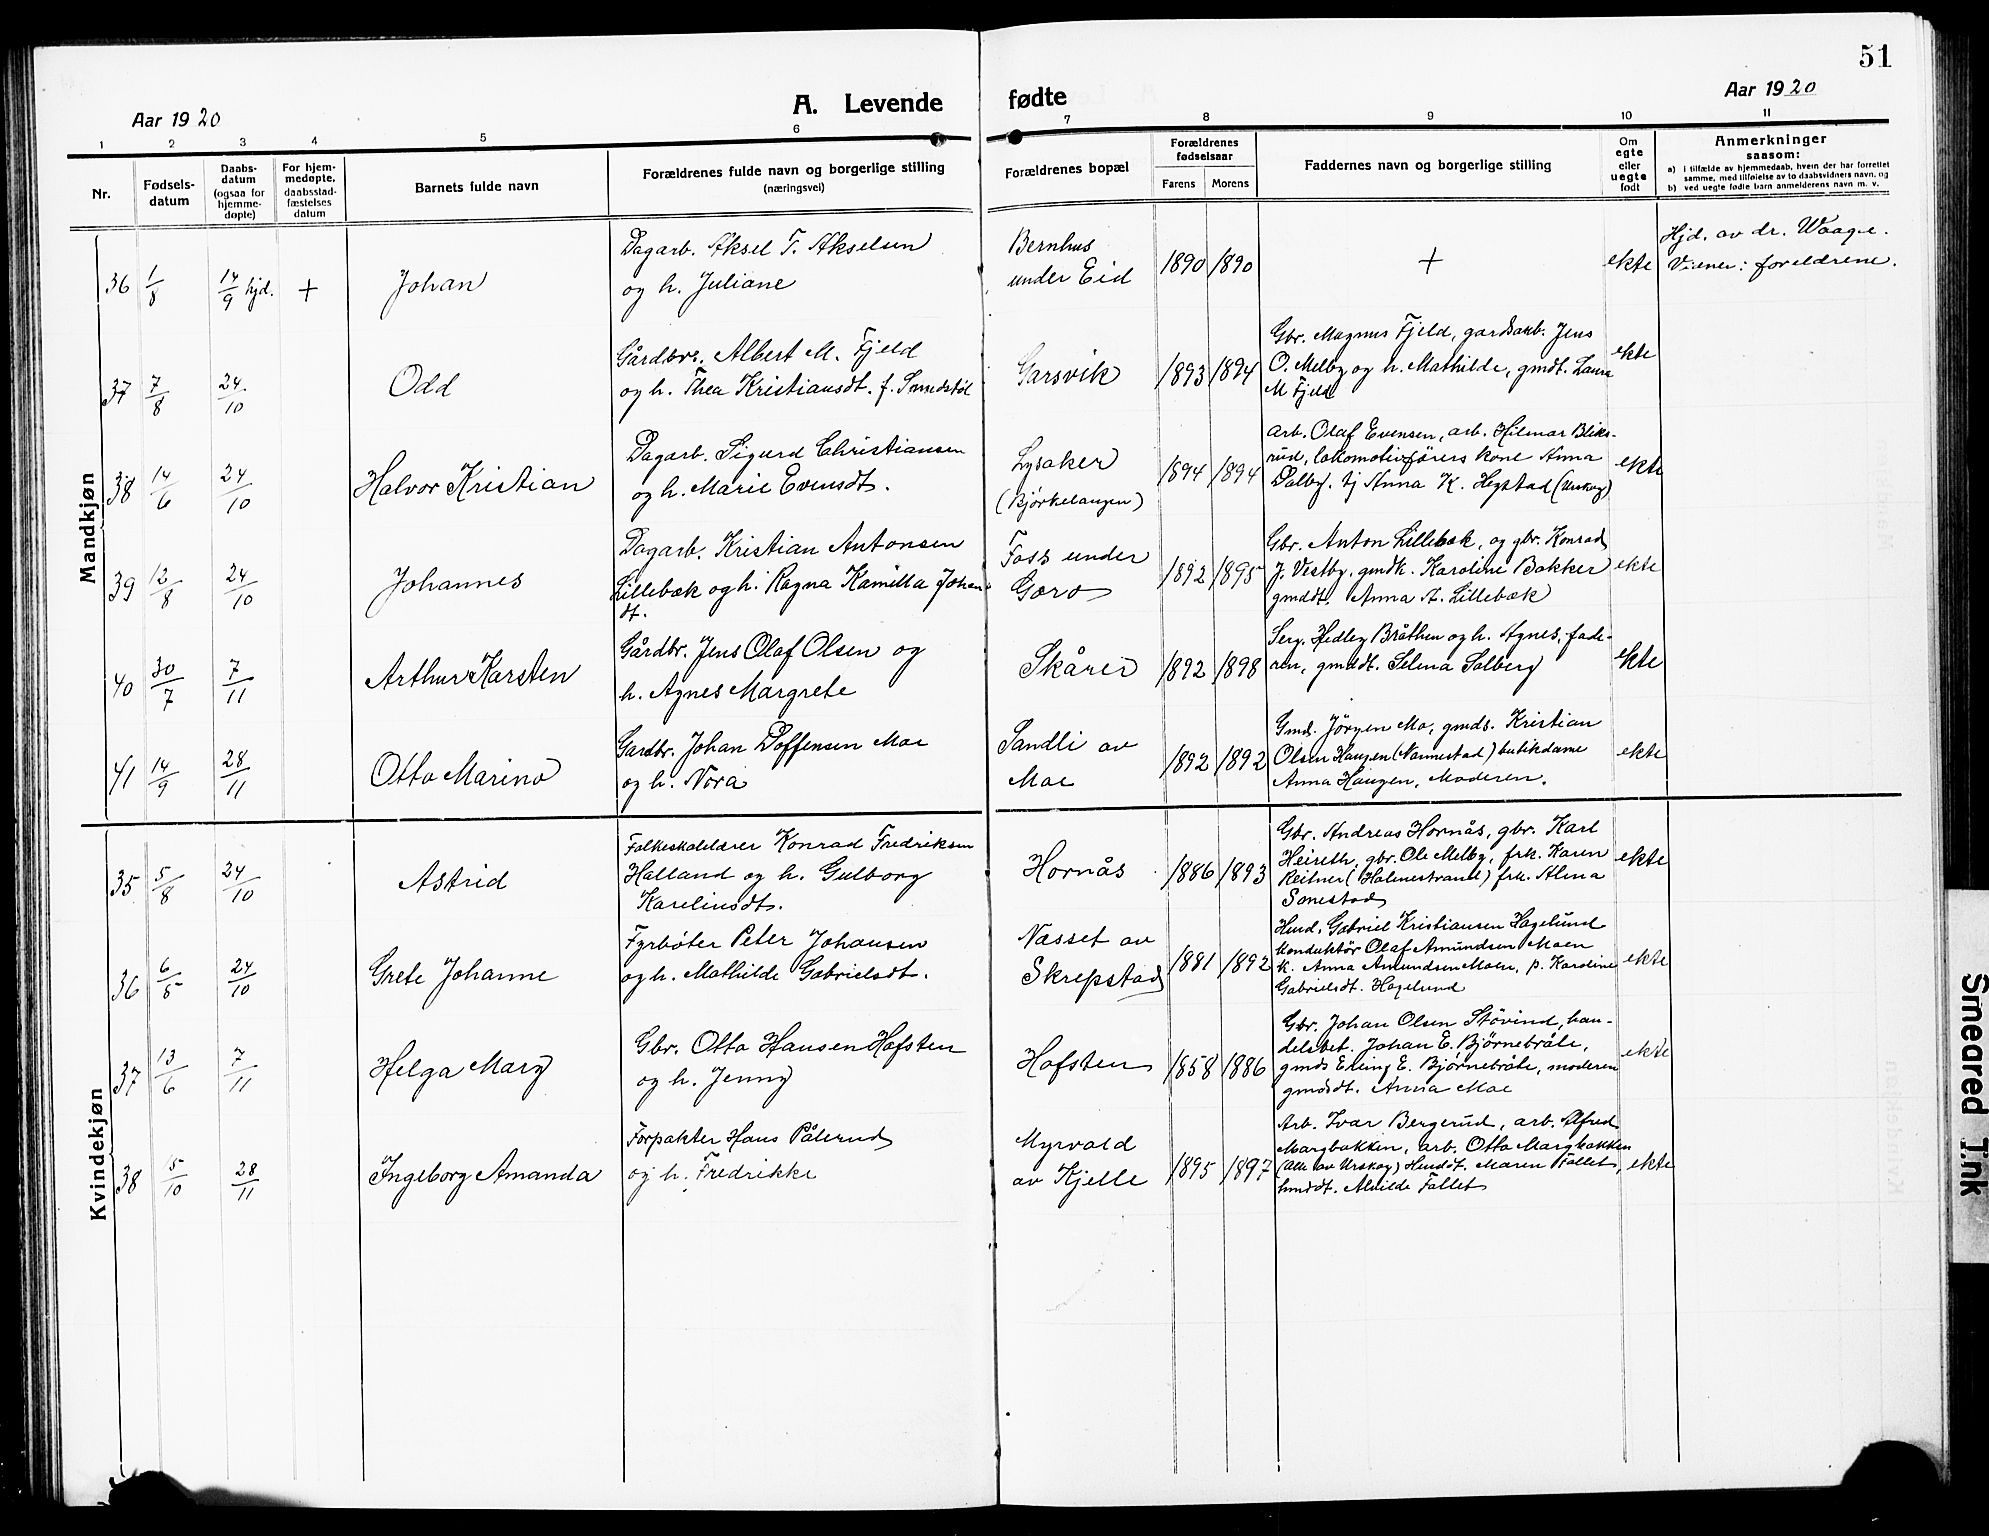 51
Aar 1920
A. Levende fødte
Aar 1920
1 2 3 4 5 6 7 8 9 10 11
Nr.
Fødsels-
datum
Daabs-
datum
(ogsaa for
hjemme-
døpte)
For hjem-
medøpte,
daabsstad-
fæstelses
datum
Barnets fulde navn
Forældrenes fulde navn og borgerlige stilling
(næringsvei)
Forældrenes bopæl
Forældrenes
fødselsaar
Farens Morens
Faddernes navn og borgerlige stilling
Om
egte
eller
uegte
født
Anmerkninger
saasom:
a) i tilfælde av hjemmedaab, hvem der har forrettet
samme, med tilføielse av to daabsvidners navn, og
b) ved uegte fødte barn anmelderens navn m. v.
Mandkjøn
36 1/8 14/9 hjd. + Johan
Dagarb. Aksel T. Akselsen
og h. Juliane
Bernhus
under Eid
1890 1890 + ekte
Hjd. av dr. Waage.
Vitner: foreldrene.
37 7/8 24/10 Odd
Gårdbr. Albert M. Fjeld
og h. Thea Kristiansdt. f. Smedstøl
Garsvik
1893 1894
Gbr. Magnus Fjeld, gardsarb. Jens
O. Melby og h. Mathilde, gmdt. Laura
M Fjeld
ekte
38 14/6 24/10 Halvor Kristian
Dagarb. Sigurd Christiansen
og h. Marie Evensdt.
Lysaker
(Bjørkelangen)
1894 1894
Arb. Olaf Evensen, arb. Hilmar Bliks-
rud, lokomotivførers kone Anna
Dalby, tj Anna K. Hegstad (Urskog)
ekte
39 12/8 24/10 Johannes
Dagarb. Kristian Antonsen
Lillebæk og h. Ragna Kamilla Johan
dt.
Foss under
Goro
1892 1895
Gbr. Anton Lillebæk, og gbr. Konrad
J. Vestby, gmdk. Karoline Bakker
gmddt. Anna A. Lillebæk
ekte
40 30/7 7/11 Arthur Karsten
Gårdbr. Jens Olaf Olsen og
h. Agnes Margrete
Skårer
1892 1898
Serg. Hedley Bråthen og h. Agnes, fade-
ren, gmddt. Selma Solberg
ekte
41 14/9 28/11 Otto Marino
Gardbr. Johan Doffensen Moe
og h. Nora
Sandli av
Moe
1892 1892
Gmd. Jörgen Mo, gmds. Kristian
Olsen Haugen (Nannestad) butikdame
Anna Haugen, Moderen.
ekte
Kvindekjøn
35 5/8 24/10 Astrid
Folkeskolelærer Konrad Fredriksen
Halland og h. Gulborg
Karelinsdt.
Hornås
1886 1893
Gbr. Andreas Hornås, gbr. Karl
Heireth, gbr. Ole Melby, frk. Karen
Reitner (Holmestrand) frk. Alma
Sonestad
ekte
36 6/5 24/10 Grete Johanne
Fyrbøter Peter Johansen
og h. Mathilde Gabrielsdt.
Næsset av
Skrepstad
1881 1892
Hmd. Gabriel Kristiansen Hagelund
Konduktör Olaf Amundsen Moen
k. Anna Amundsen Moen, p. Karoline
Gabrielsdt. Hagelund
ekte
37 13/6 7/11 Helga Mary
Gbr. Otto Hansen Hofsten
og h. Jenny
Hofsten
1858 1886
Gbr. Johan Olsen Stövind, han-
delsbet. Johan E. Björnebråte,
gmds Erling E. Bjørnebråte, moderen
gmdsdt. Anna Moe
ekte
38 15/10 28/11 Ingeborg Amanda
Forpakter Hans Pålerud
og h. Fredrikke
Myrvold
av Kjelle
1895 1897
Arb. Ivar Bergerud, arb. Alfred
Margbakken, arb. Otto Margbakken
(Alle av Urskog) Hmddt. Maren Fallet,
hmddt. Alvilde Fallet
ekte
Smeared Ink